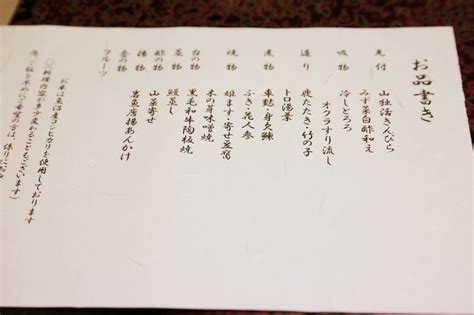 お品書き
先付
山独活きんぴら
みず菜白酢和え
吸物
冷しとろろ
オクラすり流し
造り
鹿たたき・竹の子
トロ湯葉
煮物
車麩・身欠鰊
ふき・花人参
焼物
姫ます・寄せ豆腐
木の芽味噌焼
台の物
黒毛和牛陶板焼
蒸物
鰻蒸し
酢の物
山菜寄せ
揚物
岩魚唐揚あんかけ
香の物
フルーツ
お米は魚沼産コシヒカリを使用しております
○お料理内容が多少変わることもございます